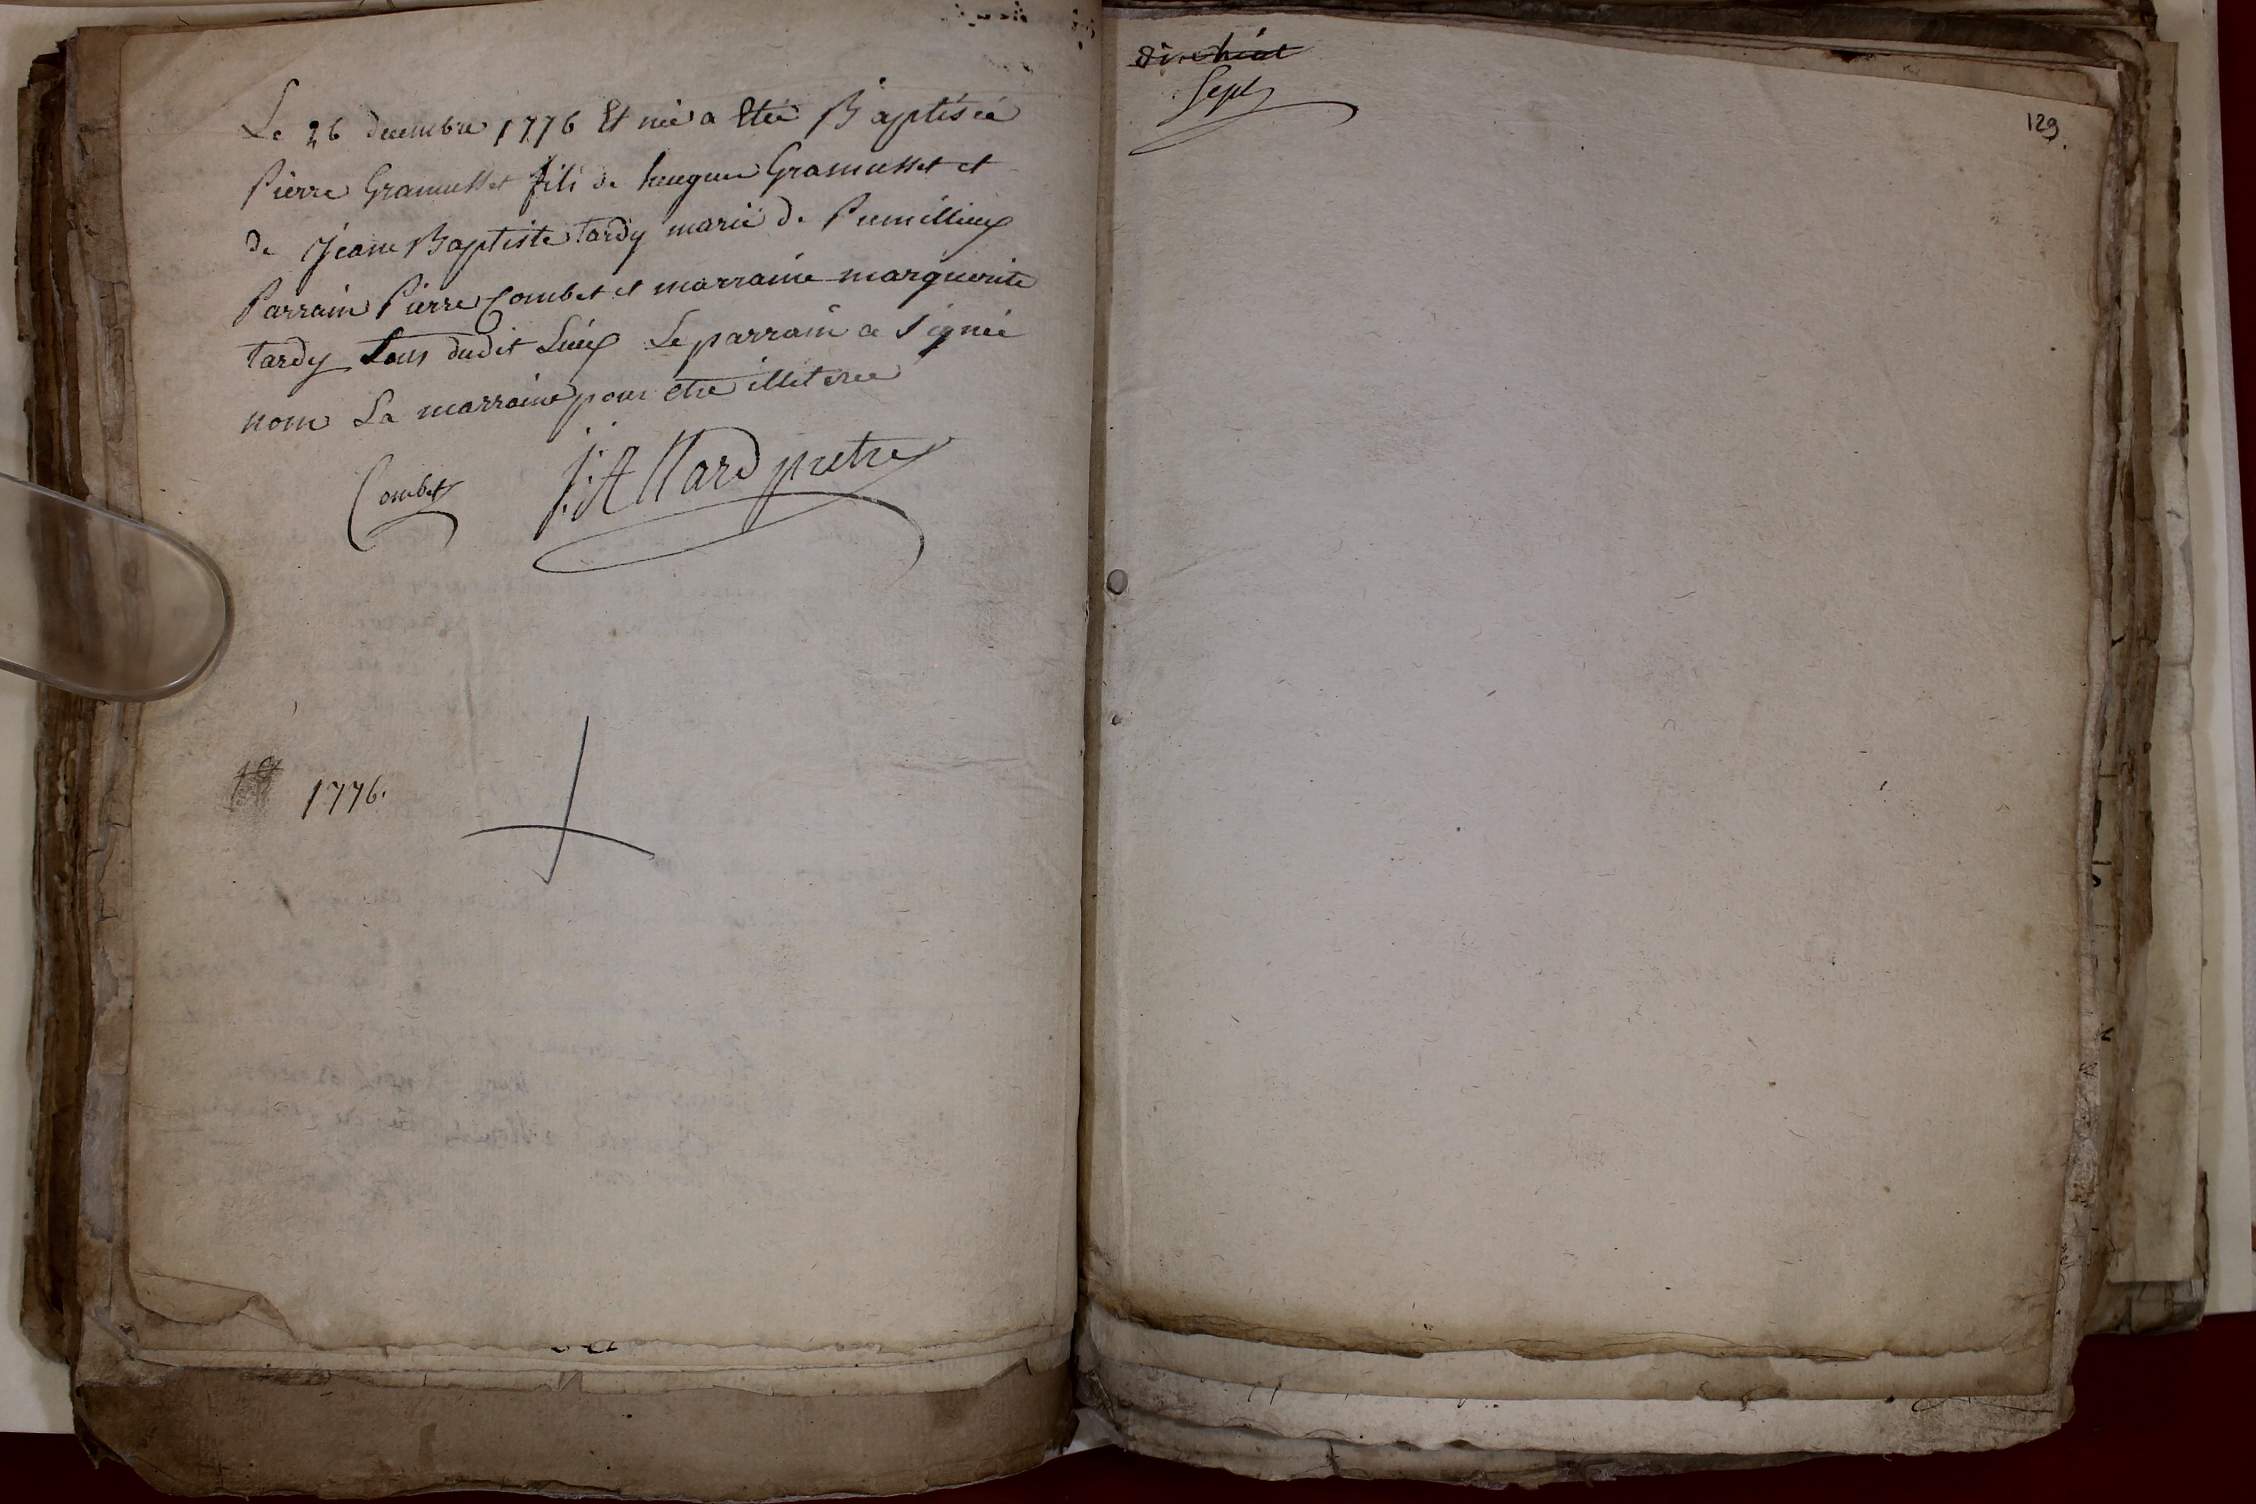 Le 26 decembre 1776 Et née a Etée Baptisée
Pierre Gramusset fils de hugue Gramusset et
de Jeane Baptiste tardy marié de Pumillieux
Parrain Pierre Combet et marraine marguerite
tardy tous dudit Lieux Le parrain a Signée
nom La marraine pour etre illiteree
Combet J: Allard pretre
1776.
Sept
129.